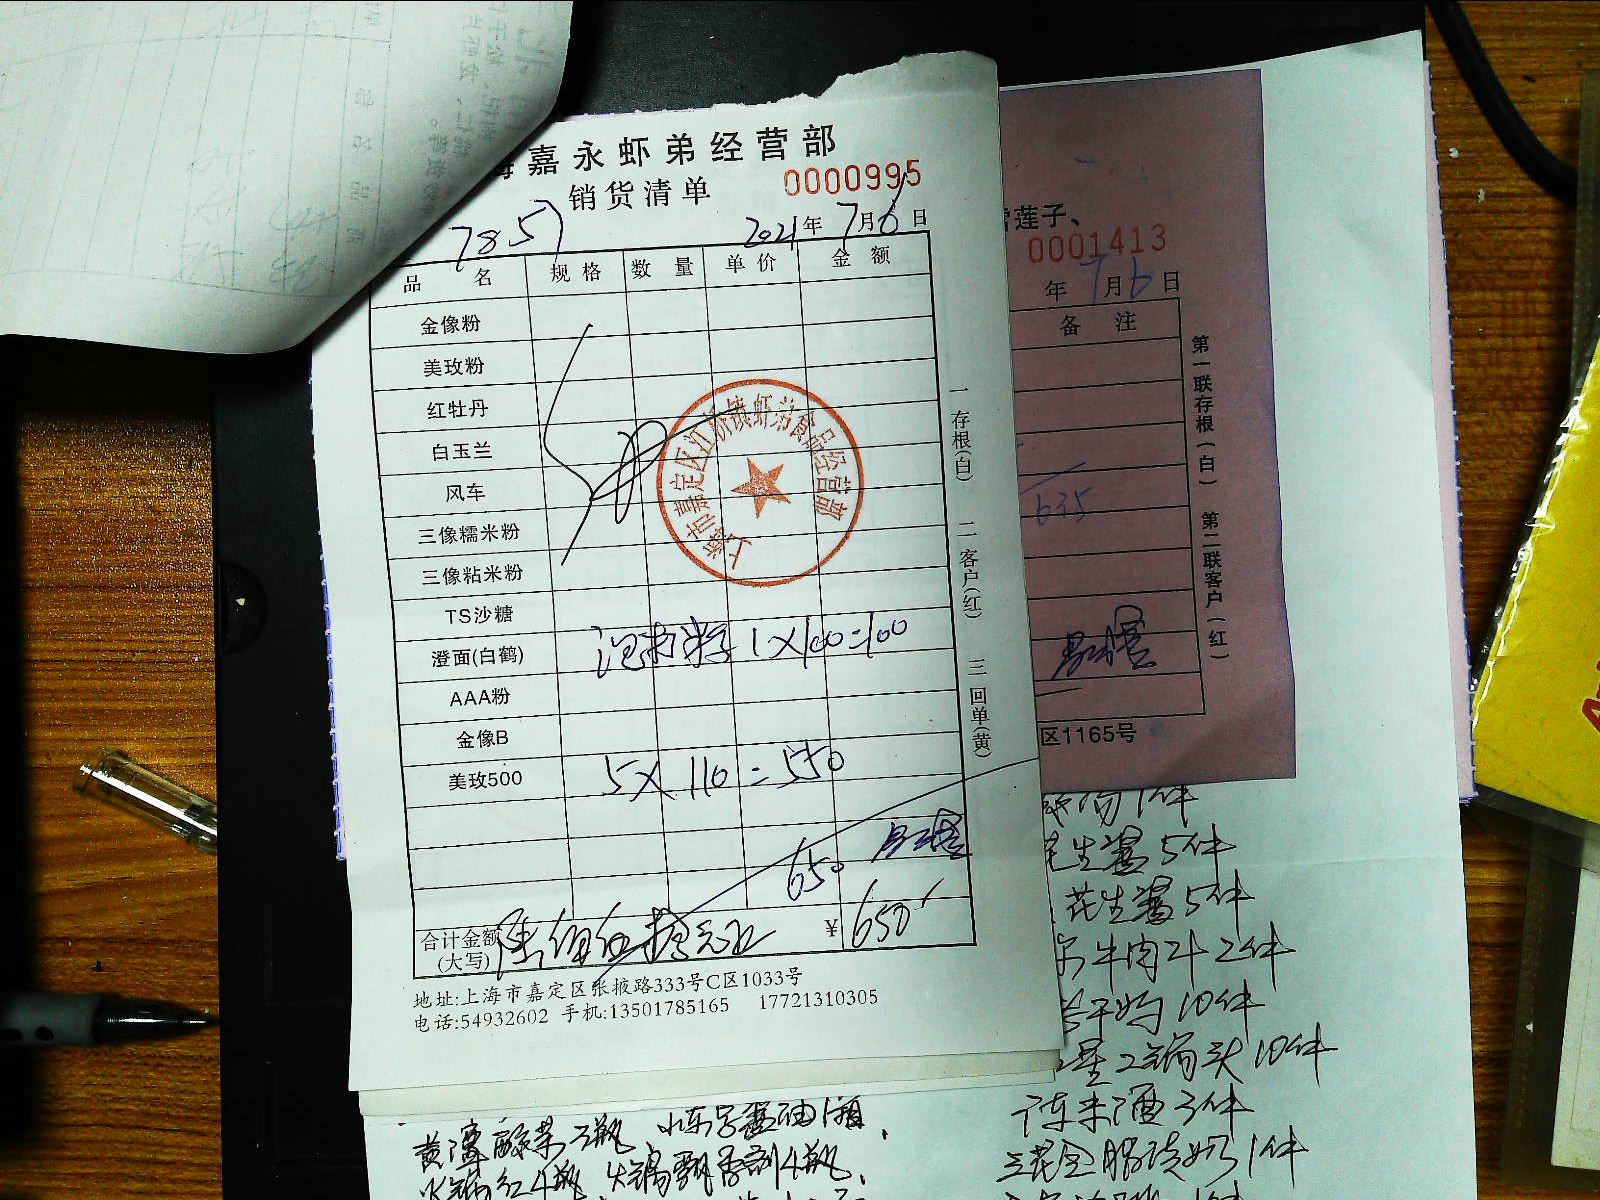 海嘉永虾弟经营部
销货清单 0000995
7857 2021年7月6日
品名 规格 数量 单价 金额
金像粉
美玫粉
红牡丹
白玉兰
风车
三像糯米粉
三像粘米粉
TS沙糖
澄面(白鹤) 1×100=100
AAA粉
金像B
美玫500 5×110=550
650
合计金额(大写) 陆佰伍拾元正 ¥ 650
地址:上海市嘉定区张掖路333号C区1033号
电话:54932602 手机:13501785165 17721310305
一存根(白) 二客户(红) 三回单(黄)
上海市嘉定区江桥镇虾弟食品经营部
莲子、
0001413
年7月6日
备注
635
区1165号
第一联存根(白) 第二联客户(红)
1件
花生酱5件
花生酱5件
牛肉汁2件
10件
星二锅头10件
广东米酒3件
三花全脂淡奶1件
黄灯酸菜3瓶
火锅红4瓶 火锅飘香剂4瓶